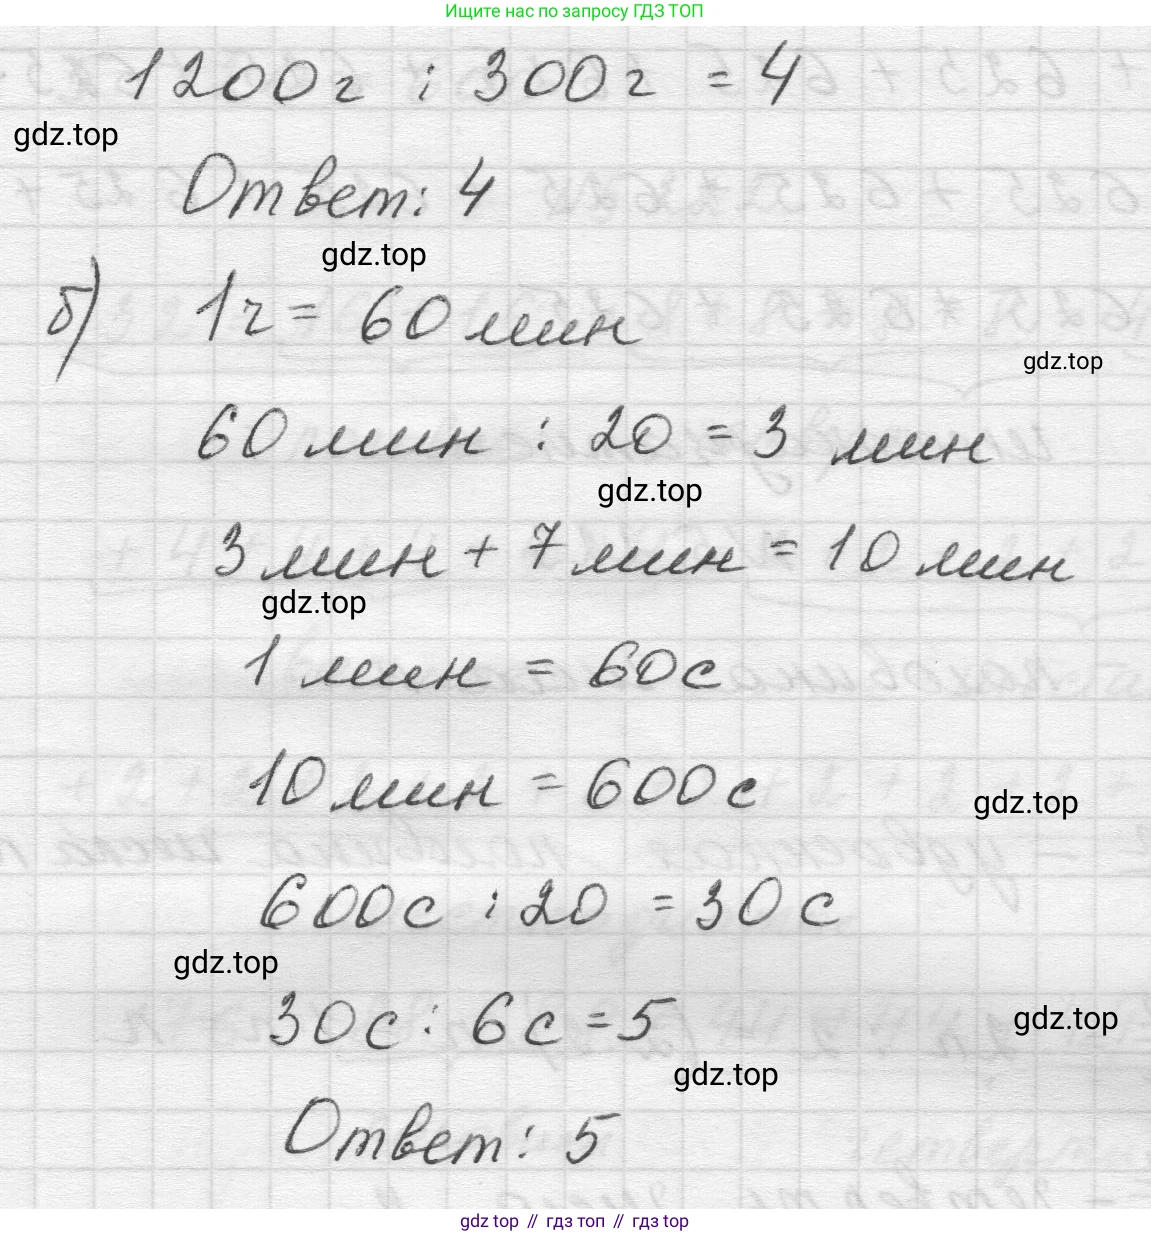 Ищите нас по запросу ГДЗ ТОП
1200г : 300г = 4
gdz.top
Ответ: 4
gdz.top
б) 1ч = 60 мин
gdz.top
60 мин : 20 = 3 мин
gdz.top
3 мин + 7 мин = 10 мин
gdz.top
1 мин = 60 с
10 мин = 600 с
gdz.top
600 с : 20 = 30 с
gdz.top
30 с : 6 с = 5
gdz.top
gdz.top
Ответ: 5
gdz top // гдз топ // gdz top